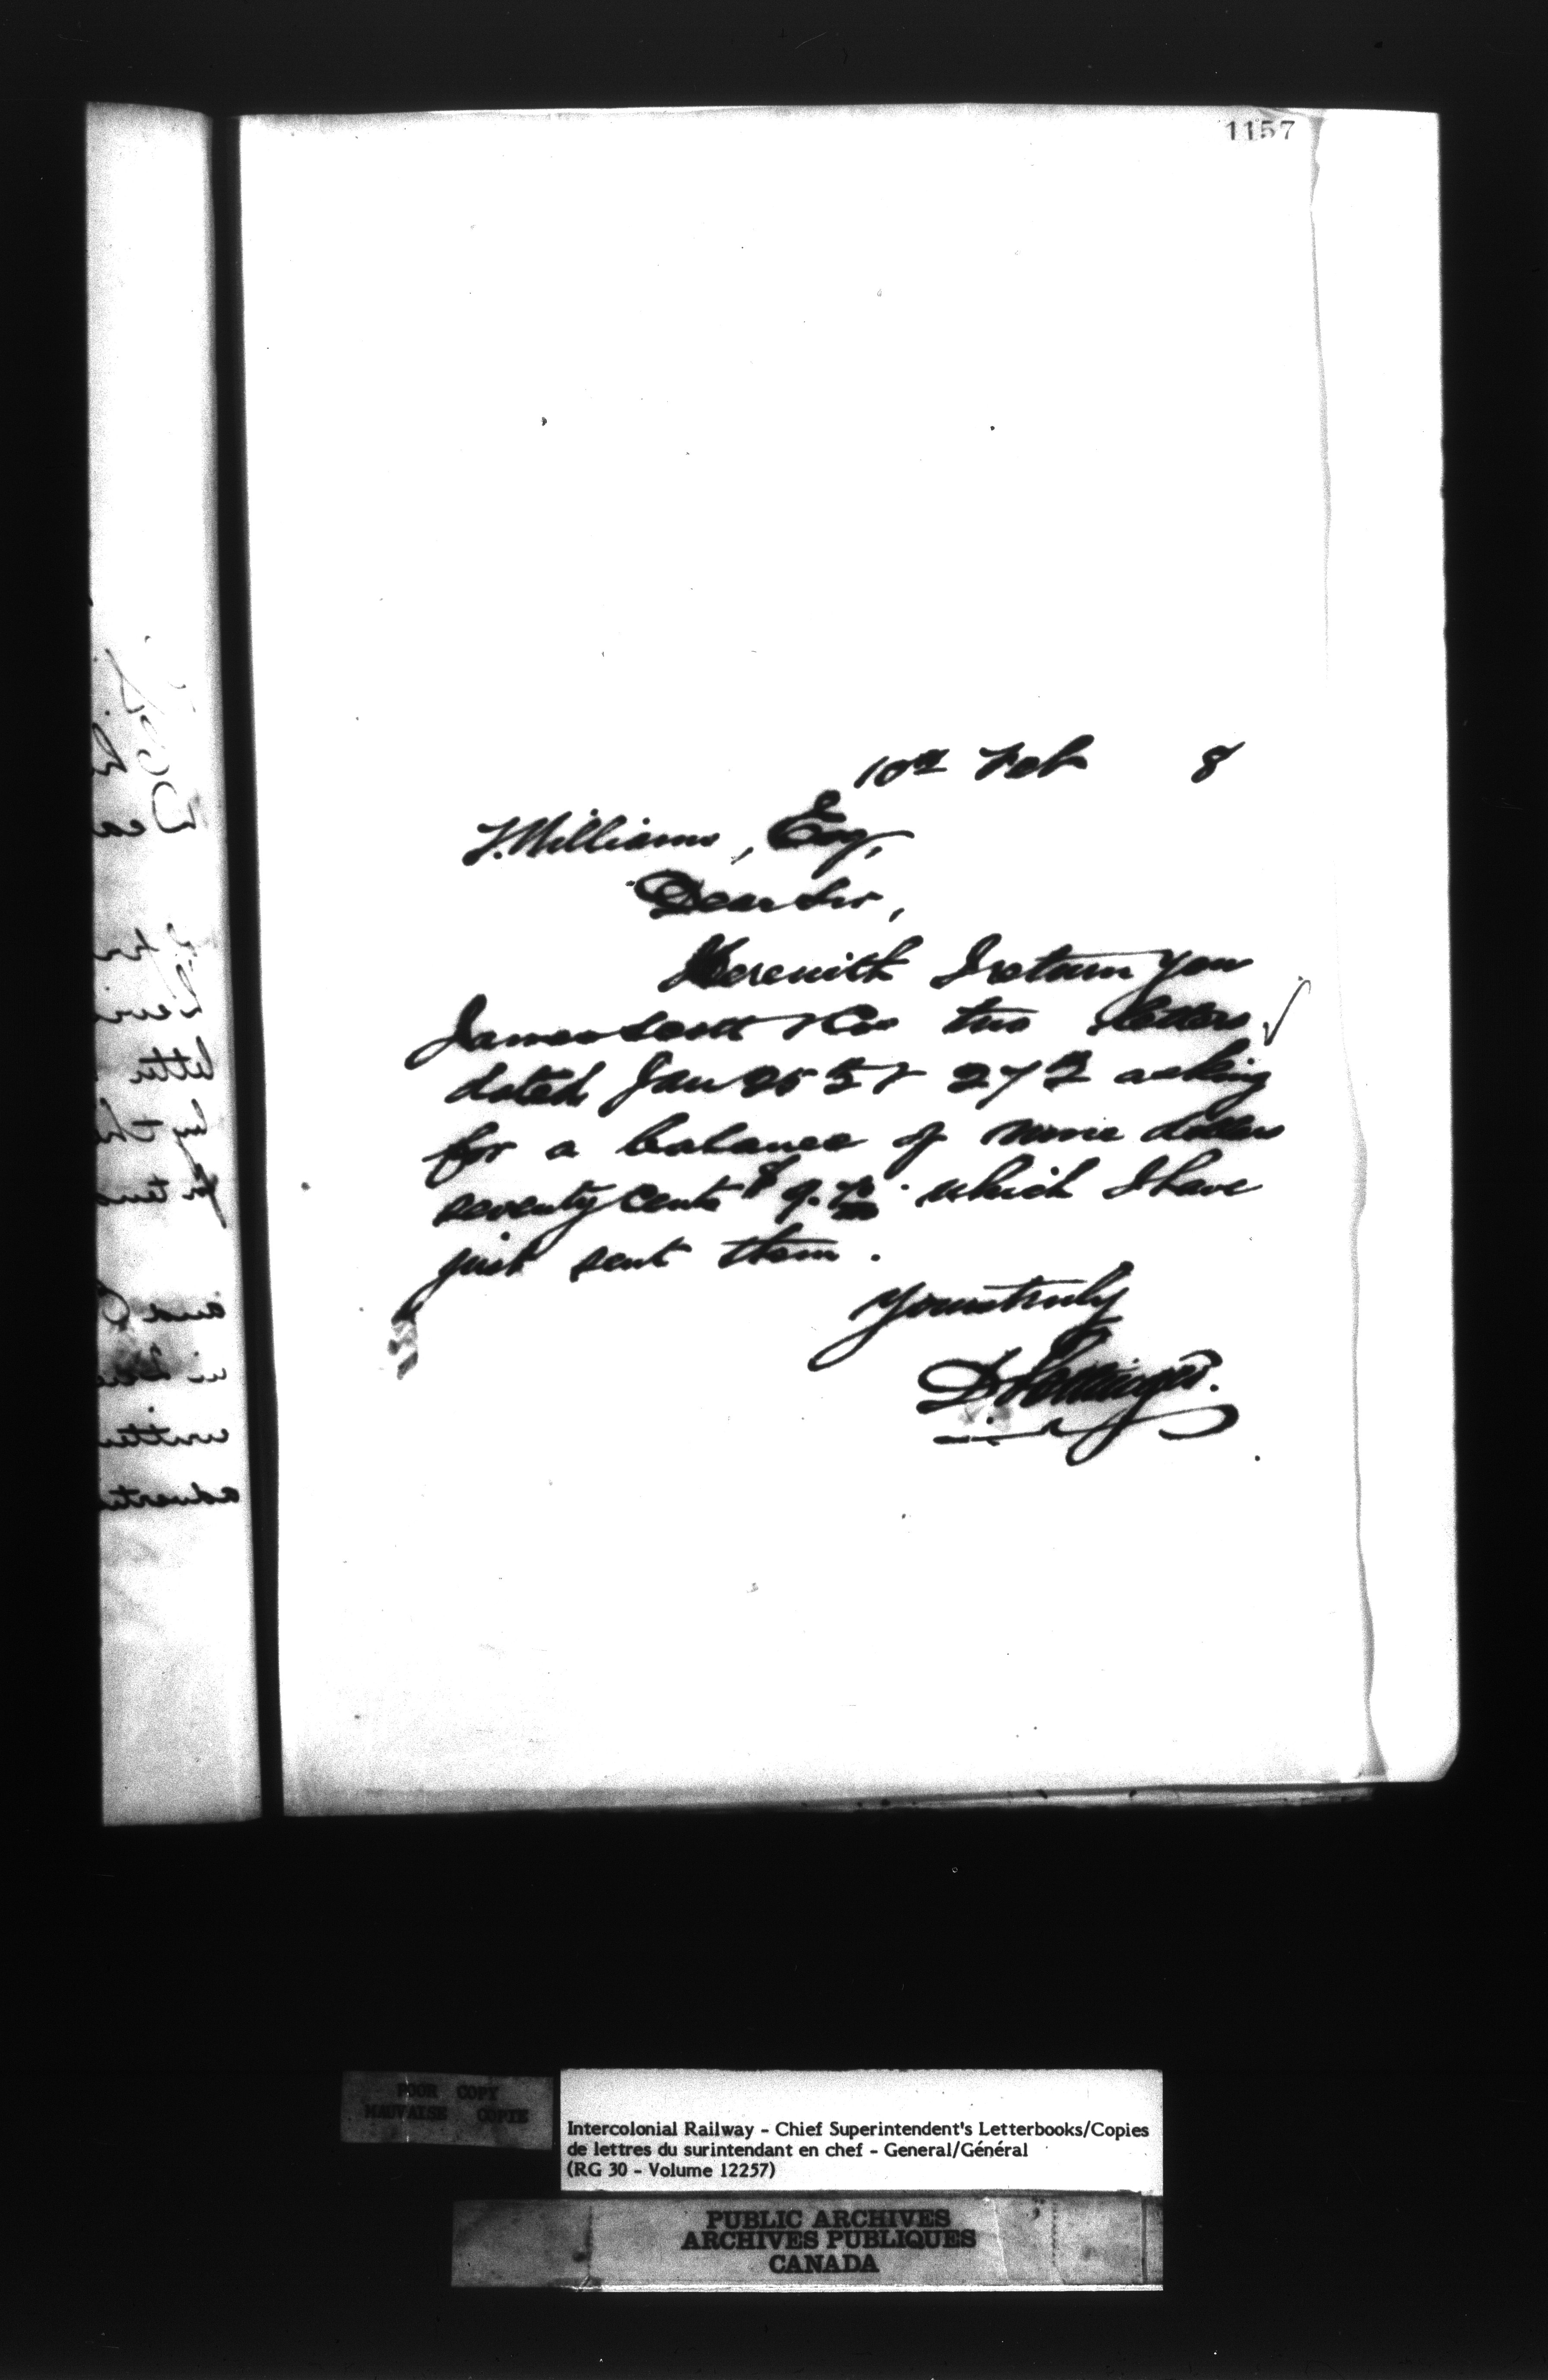 1157
10th Feb 8
T. Williams, Esq,
Dear Sir,
Herewith I return you
James Scott & Co two letters
dated Jan 25th & 27th asking
for a balance of nine dollars
seventy cents $9.70 which I have
just sent them.
Yours truly
D Pottinger.
POOR COPY
MAUVAISE COPIE
Intercolonial Railway - Chief Superintendent's Letterbooks/Copies
de lettres du surintendant en chef - General/Général
(RG 30 - Volume 12257)
PUBLIC ARCHIVES
ARCHIVES PUBLIQUES
CANADA